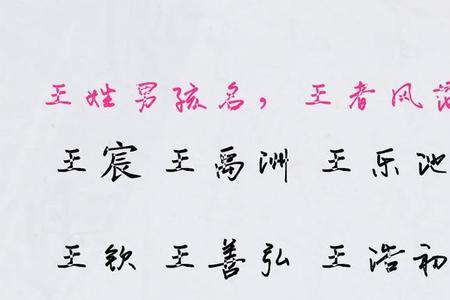 王姓男孩名，王者风范
王宸 王禹洲 王乐池
王钦 王善弘 王浩初